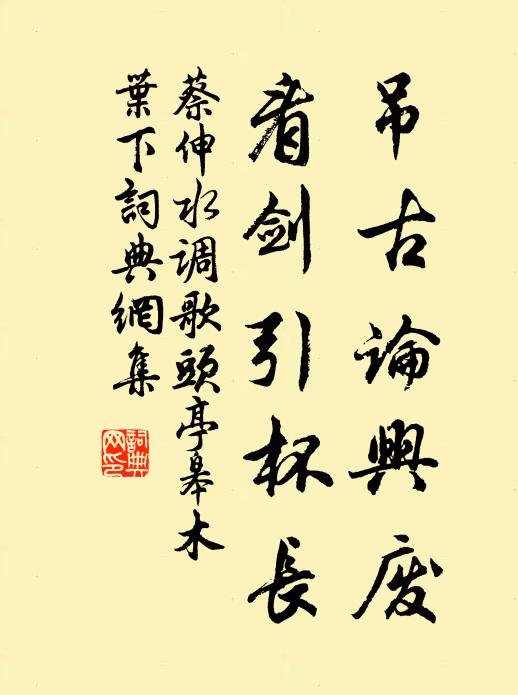 吊古論興廢
看劍引杯長
蔡伸水调歌頭亭皋木
葉下詞典網集
詞典網印